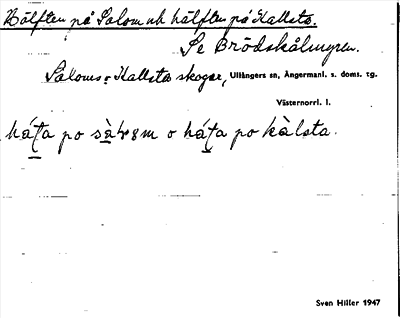 Hälften på Salom och hälften på Kallsta.
Se Brödskålmyren.
Saloms o Kallstas skogar, Ullångers sn, Ångermanl. s. doms. tg.
Västernorrl. l.
po o po kàlsta.
Sven Hiller 1947